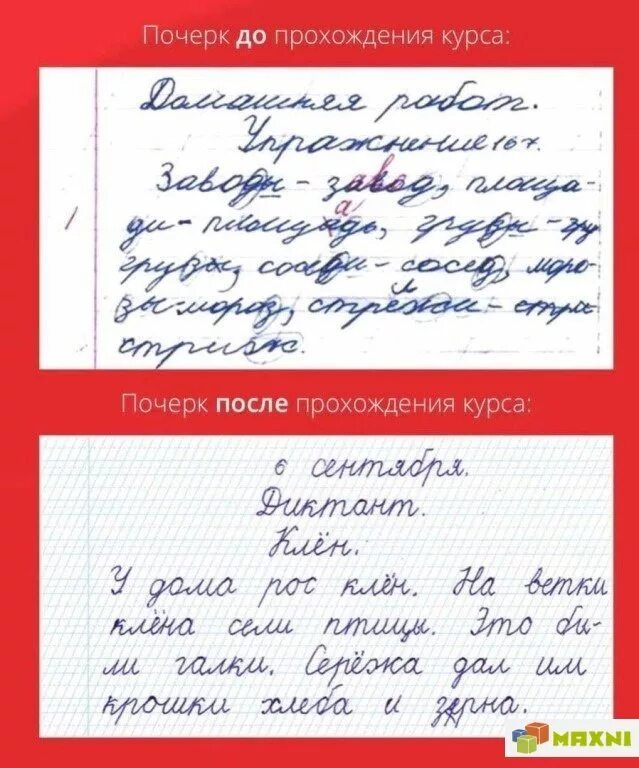 Почерк до прохождения курса:
Домашняя работ.
Упражнение 167.
Заводы - завод, площа-
ди - площадь, грузы - гру
грузы, сосди - сосед, моро-
зы-мороз, стрёжи - стри
стриж.
Почерк после прохождения курса:
6 сентября.
Диктант.
Клён.
У дома рос клён. На ветки
клёна сели птицы. Это бы-
ли галки. Серёжа дал им
крошки хлеба и зёрна.
MAXNI